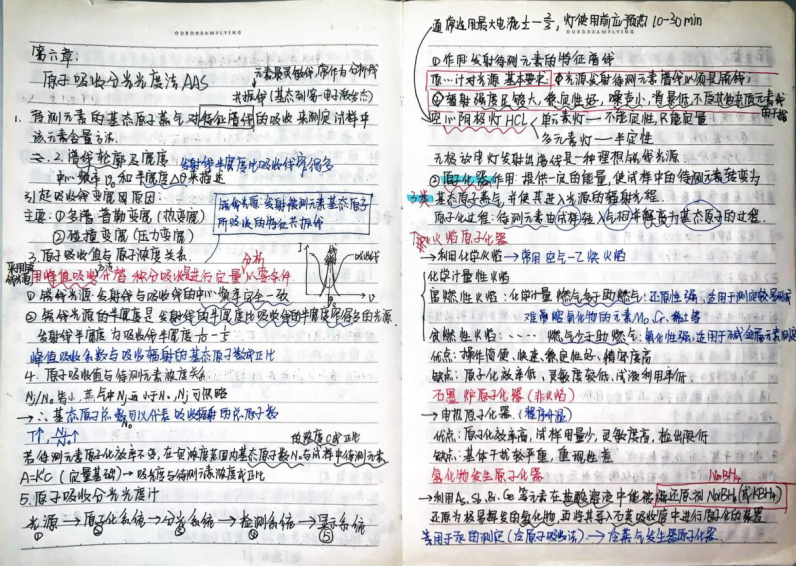 OURDREAMFLYING
第六章:
原子吸收分光光度法 AAS
元素最灵敏线,常作为分析线
共振线(基态到第一电子激发态)
1. 待测元素的基态原子蒸气对特征谱线的吸收来测定试样中
该元素含量方法.
2. 谱线轮廓及宽度
发射线半宽度比吸收线窄得多
中心频率ν₀和半宽度Δν来描述
引起吸收线变宽因原因:
主要:①多普勒变宽(热变宽)
②碰撞变宽(压力变宽)
锐线光源:发射被测元素基态原子
所吸收的特征共振线
3. 原子吸收值与原子浓度关系.
采用
用峰值吸收代替积分吸收进行定量必要条件
分析
① 锐线光源:发射线与吸收线的中心频率完全一致
② 锐线光源的半宽度是发射线的半宽度比吸收线的半宽度窄得多的光源
发射线半宽度为吸收线半宽度
峰值吸收系数与吸收辐射的基态原子数成正比
4. 原子吸收值与待测元素浓度关系.
Nj/N₀ 皆小
→ ∴ 基态原子总数可以代表吸收辐射的原子总数
N₀
T↑, Nj/N₀↑
若待测元素原子化效率不变,在一定浓度范围内基态原子数N₀与试样中待测元素
的浓度C成正比
A=K'C (定量基础) → 吸光度与待测元素浓度成正比
5. 原子吸收分光光度计
光源 → 原子化系统 → 分光系统 → 检测系统 → 显示系统
① ② ③ ④ ⑤
通常选用最大电流 1/2—2/3, 灯使用前应预热 10-30min
OURDREAMFLYING
①作用:发射待测元素的特征谱线
设计对光源基本要求:①光源发射待测元素谱线必须是锐线;
②辐射强度足够大,稳定性好,噪声小,背景低,不受其他杂质元素线
的干扰
空心阴极灯 HCL 单元素灯——不稳定性,只能定量
多元素灯——半定性
无极放电灯发射出谱线是一种理想锐线光源
②原子化器作用:提供一定的能量,使试样中的待测元素转变为
3类
基态原子蒸气,并使其进入光源的辐射光程.
原子化过程:待测元素由试样转入气相并解离为基态原子的过程.
火焰原子化器
→利用化学火焰→常用 空气-乙炔火焰
化学计量性火焰
富燃性火焰:化学计量 燃气多于助燃气:还原性强,适用于测定较易形成
难熔氧化物的元素 Mo、Cr、稀土等
贫燃性火焰:····· 燃气少于助燃气:氧化性强,适用于碱金属元素测定
优点:操作简便、快速、稳定性好、精密度高
缺点:原子化效率低、灵敏度较低、试液利用率低.
石墨炉原子化器(非火焰)
→电热原子化器.(程序升温)
优点:原子化效率高,试样用量少,灵敏度高,检出限低
缺点:基体干扰较严重,重现性差
氢化物发生原子化器
NaBH₄
→利用As、Sb、Bi、Ge等元素在盐酸溶液中能被强还原剂 NaBH₄(或KBH₄)
还原为极易挥发的氢化物,再将其导入石英吸收管中进行原子化的装置
专用于汞的测定(冷原子吸收法)→冷蒸气发生器原子化器.